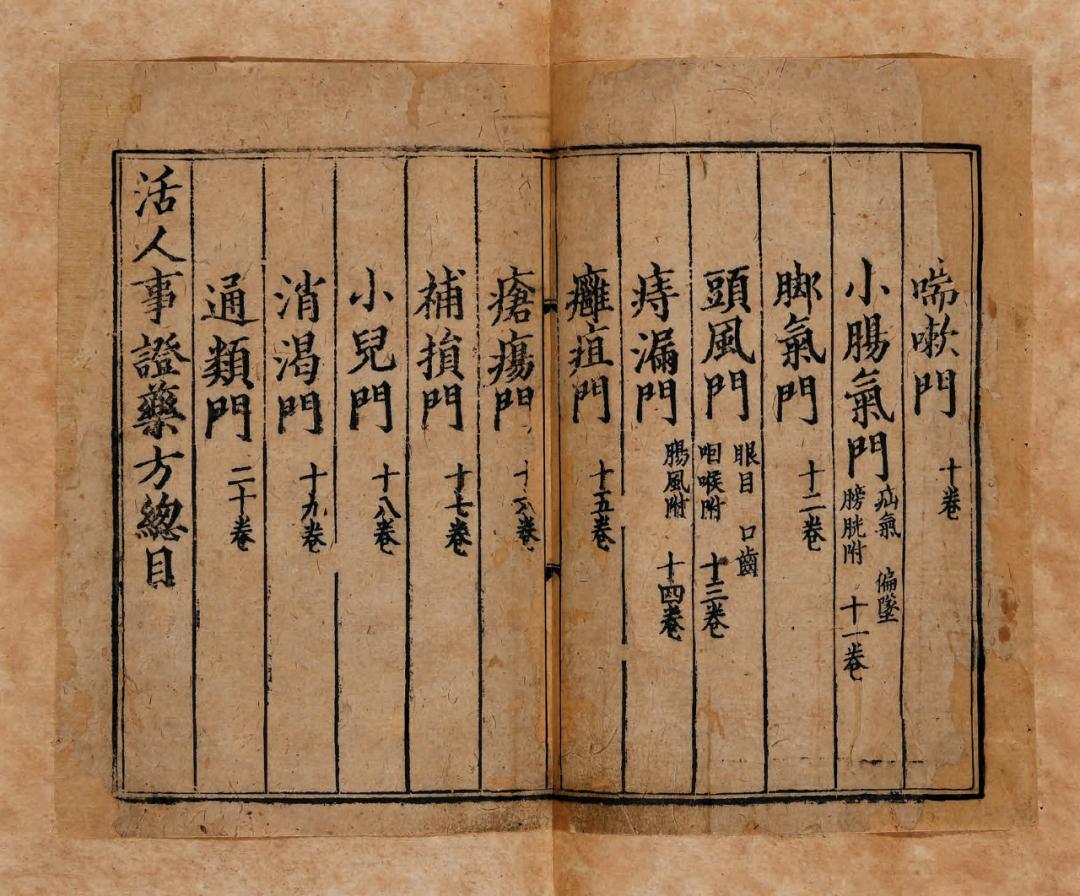 喘嗽門 十卷
小腸氣門 疝氣 偏墜 膀胱附 十一卷
脚氣門 十二卷
頭風門 眼目 口齒 咽喉附 十三卷
痔漏門 腸風附 十四卷
癰疽門 十五卷
瘡瘍門 十六卷
補損門 十七卷
小兒門 十八卷
消渴門 十九卷
通類門 二十卷
活人事證藥方總目